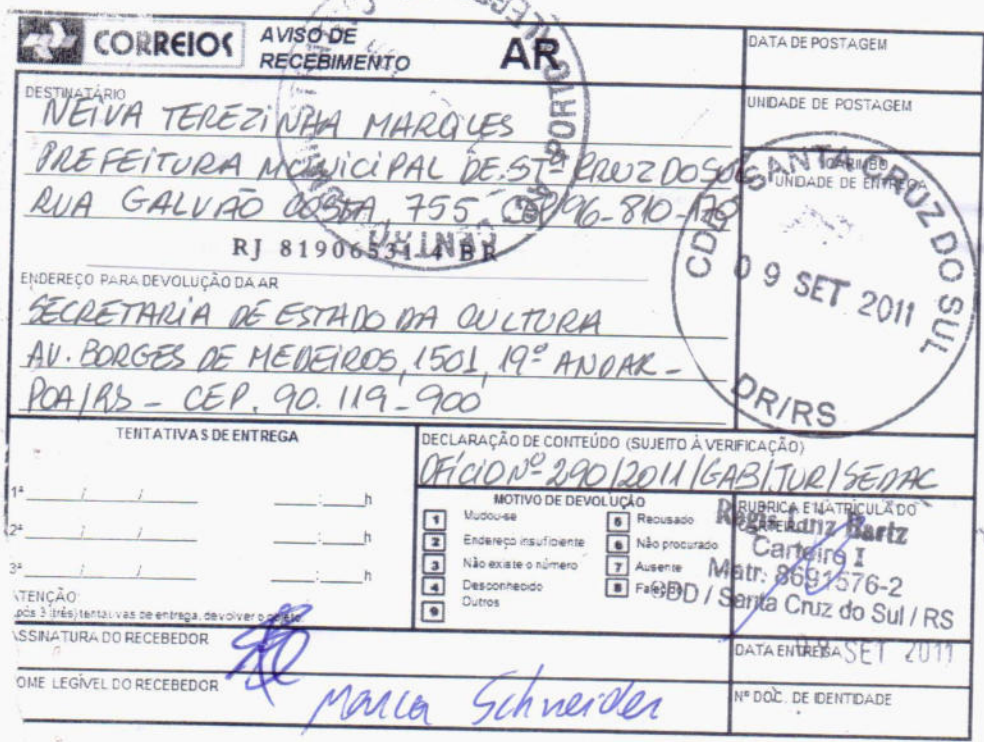 CORREIOS
AVISO DE
RECEBIMENTO
AR
DATA DE POSTAGEM
UNIDADE DE POSTAGEM
DESTINATÁRIO
NEIVA TEREZINHA MARQUES
PREFEITURA MUNICIPAL DE STª CRUZ DO SUL
RUA GALVÃO COSTA, 755 CEP 96-810-170
RJ 81906531 4 BR
PORTO ALEGRE
CENTRAL
CARIMBO
UNIDADE DE ENTREGA
CDD SANTA CRUZ DO SUL
09 SET 2011
DR/RS
ENDEREÇO PARA DEVOLUÇÃO DA AR
SECRETARIA DE ESTADO DA CULTURA
AV. BORGES DE MEDEIROS, 1501, 19º ANDAR -
POA/RS - CEP. 90.119-900
TENTATIVAS DE ENTREGA
1ª ____/____/____ ____:____h
2ª ____/____/____ ____:____h
3ª ____/____/____ ____:____h
ATENÇÃO:
após 3 (três) tentativas de entrega, devolver o objeto
DECLARAÇÃO DE CONTEÚDO (SUJEITO À VERIFICAÇÃO)
OFÍCIO Nº 290/2011/GAB/JUR/SEDAC
MOTIVO DE DEVOLUÇÃO
1 Mudou-se
2 Endereço insuficiente
3 Não existe o número
4 Desconhecido
9 Outros
5 Recusado
6 Não procurado
7 Ausente
8 Falecido
RUBRICA E MATRÍCULA DO
CARTEIRO
Regis Lanz Bartz
Carteiro I
Matr. 8691576-2
CDD / Santa Cruz do Sul / RS
ASSINATURA DO RECEBEDOR
DATA ENTREGA
SET 2011
NOME LEGÍVEL DO RECEBEDOR
Schneider
Nº DOC. DE IDENTIDADE